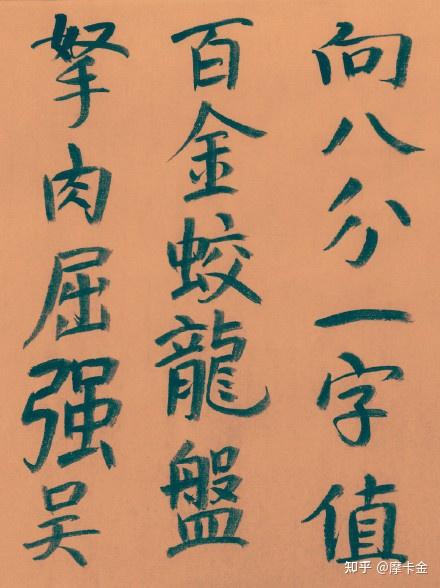 向八分一字值
百金蛟龍盤
拏肉屈强吴
知乎 @摩卡金